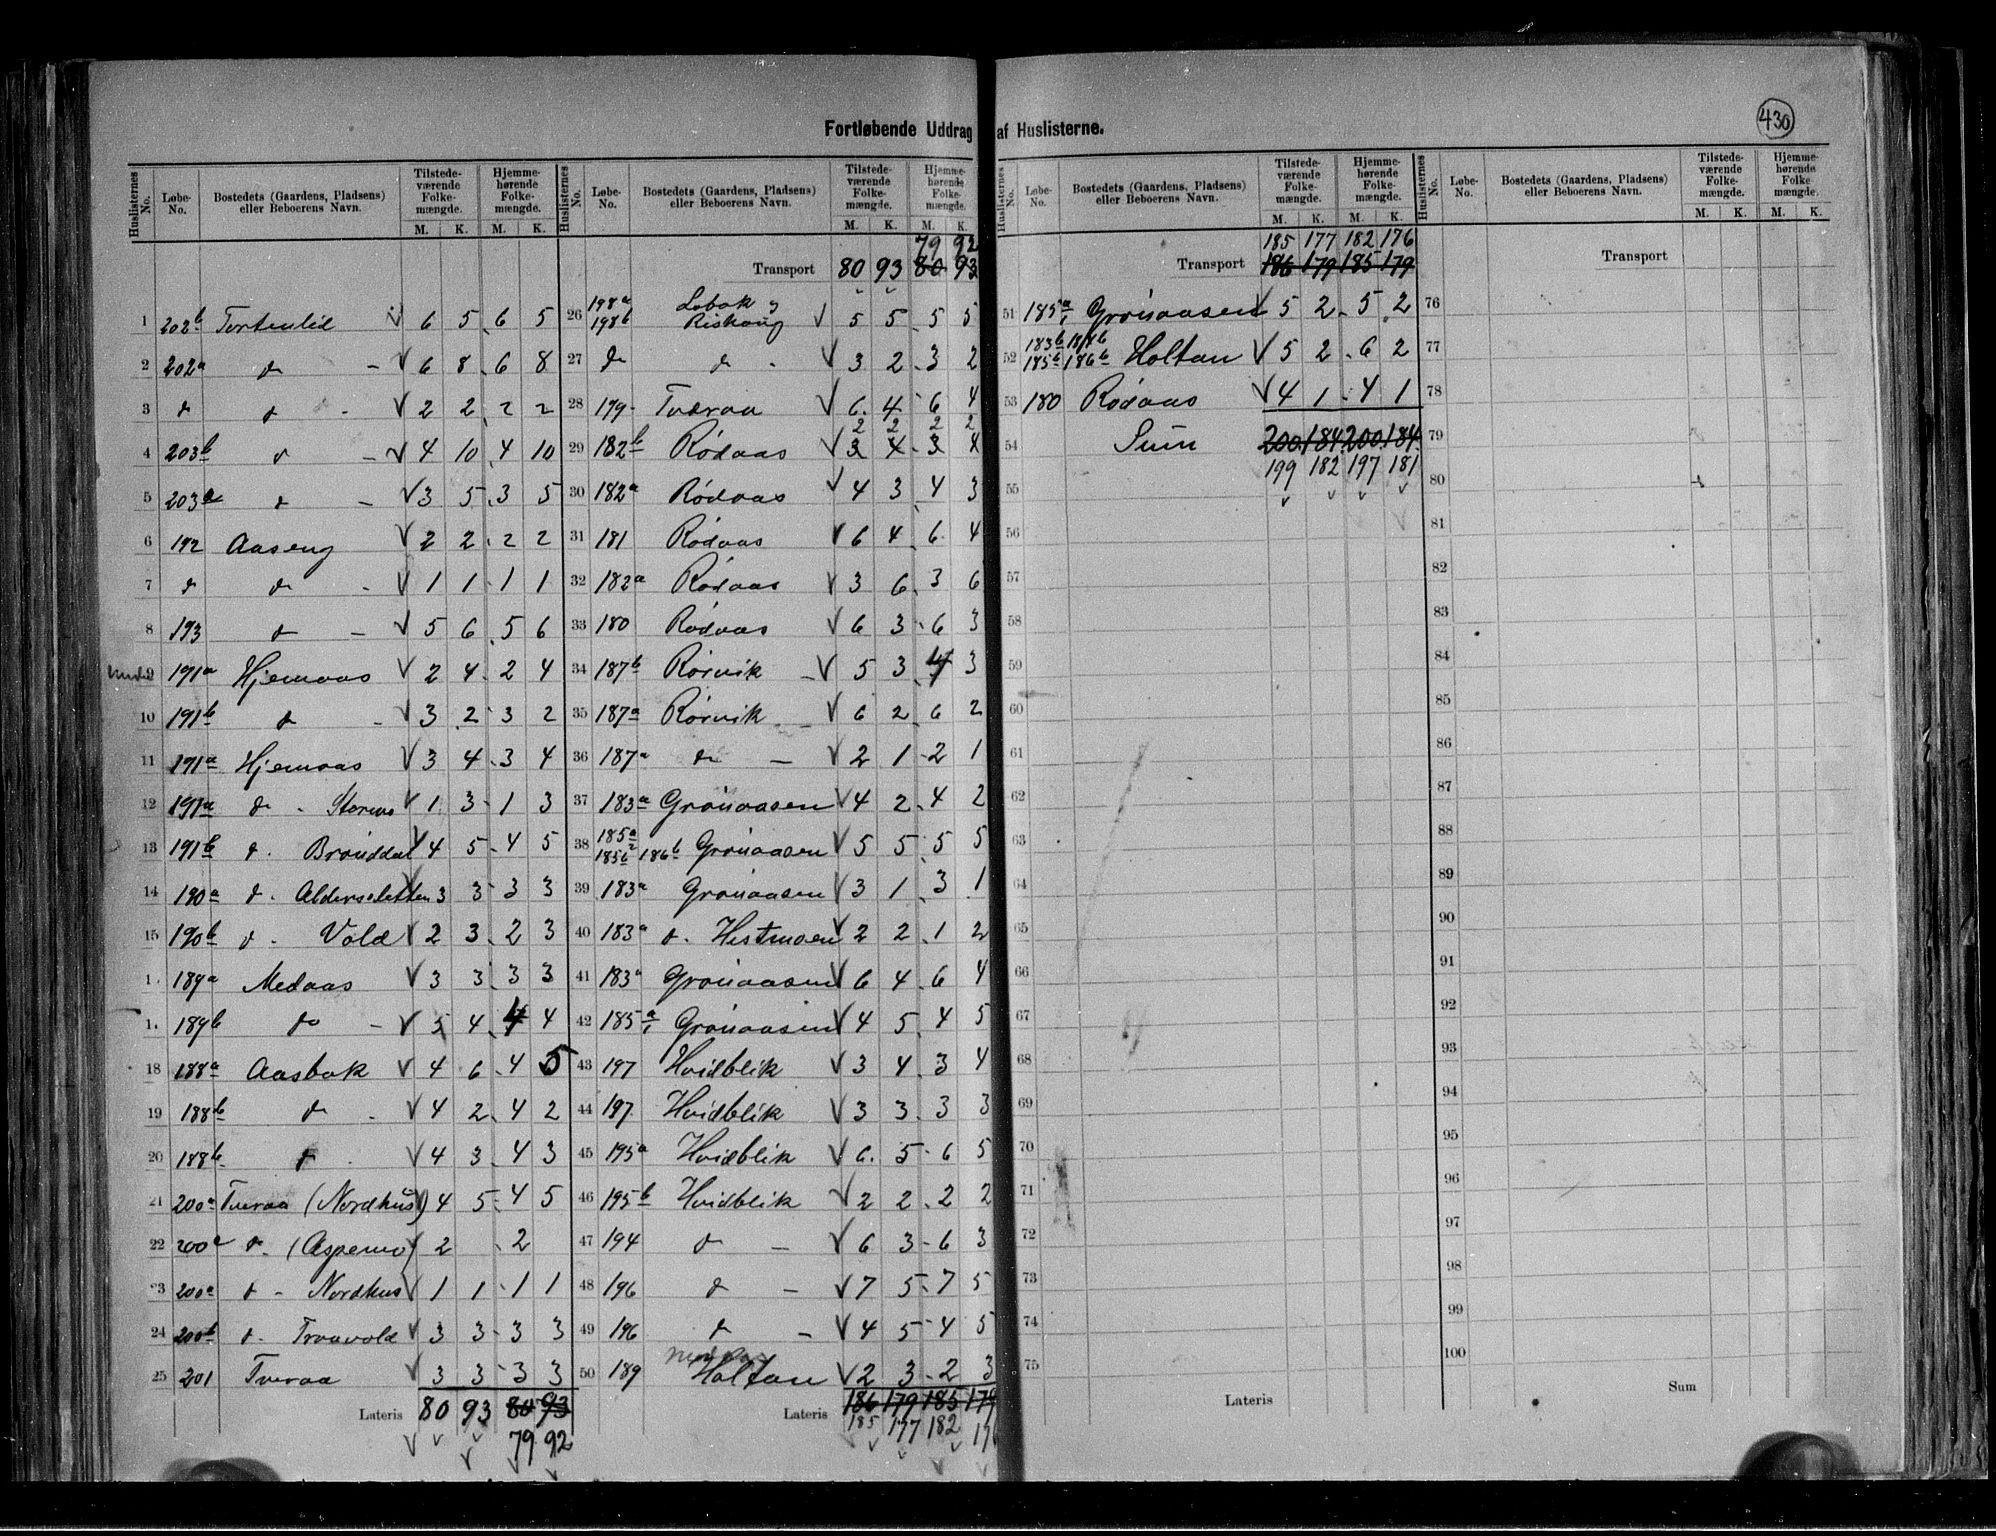 430
Fortløbende Uddrag af Huslisterne.
Huslisternes No. | Løbe-No. | Bostedets (Gaardens, Pladsens) eller Beboerens Navn. | Tilstedeværende Folkemængde. M. K. | Hjemmehørende Folkemængde. M. K.
1 202b Tortenlid V 6 5 6 5
2 202a do - V 6 8 6 8
3 do do - V 2 2 2 2
4 203b do - V 4 10 4 10
5 203a do - V 3 5 3 5
6 192 Aaseng V 2 2 2 2
7 do do - V 1 1 1 1
8 193 do - V 5 6 5 6
9 191a Hjemaas V 2 4 2 4
10 191b do - V 3 2 3 2
11 191a Hjemaas V 3 4 3 4
12 191a do - V 1 3 1 3
13 191b do. Brønddal V 4 5 4 5
14 190a do. Aldersletten 3 3 3 3
15 190b do. Vold V 2 3 2 3
1 189a Medaas V 3 3 3 3
1 189b do - V 5 4 4 4
18 188a Aasbak V 4 6 4 5
19 188b do - V 4 2 4 2
20 188b do V 4 3 4 3
21 200a Tveraa (Nordhus) 4 5 4 5
22 200a do. (Aspemo) 2 2
23 200a do - Nordhus V 1 1 1 1
24 200b do. Traavold V 3 3 3 3
25 201 Tveraa V 3 3 3 3
Lateris 80 93 80 93
79 92
79 92
Transport 80 93 80 93
26 198a 198b Løbak og Riskaug V 5 5 5 5
27 do do - V 3 2 3 2
28 179 Tværaa V 6 4 6 4
2 2 2 2
29 182b Rødaas V 3 4 3 4
30 182a Rødaas V 4 3 4 3
31 181 Rødaas V 6 4 6 4
32 182a Rødaas V 3 6 3 6
33 180 Rødaas V 6 3 6 3
34 187b Rørvik - V 5 3 4 3
35 187a Rørvik - V 6 2 6 2
36 187a do - V 2 1 2 1
37 183a Grønaasen V 4 2 4 2
38 185a2 185b 186b Grønaasen V 5 5 5 5
39 183a Grønaasen V 3 1 3 1
40 183a do. Hestmoen V 2 2 1 2
41 183a Grønaasen V 6 4 6 4
42 185a1 Grønaasen V 4 5 4 5
43 197 Hvidblik V 3 4 3 4
44 197 Hvidblik V 3 3 3 3
45 195a Hvidblik V 6 5 6 5
46 195b Hvidblik V 2 2 2 2
47 194 do - V 6 3 6 3
48 196 do - V 7 5 7 5
49 196 do - V 4 5 4 5
50 189 Holtan V 2 3 2 3
Lateris 186 179 185 179
185 177 182 176
Huslisternes No. | Løbe-No. | Bostedets (Gaardens, Pladsens) eller Beboerens Navn. | Tilstedeværende Folkemængde. M. K. | Hjemmehørende Folkemængde. M. K.
185 177 182 176
Transport 186 179 185 179
51 185a1 Grønaasen V 5 2 5 2
52 183b 185b 186b Holtan V 5 2 6 2
53 180 Rødaas V 4 1 4 1
54 Sum 200 184 200 184
199 182 197 181
55
56
57
58
59
60
61
62
63
64
65
66
67
68
69
70
71
72
73
74
75
Lateris
Transport
76
77
78
79
80
81
82
83
84
85
86
87
88
89
90
91
92
93
94
95
96
97
98
99
100
Sum